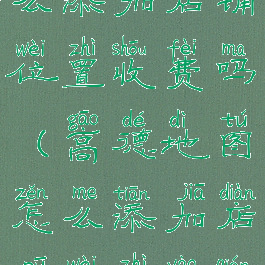 么添加店铺
wèi zhì shōu fèi ma
位置收费吗
gāo dé dì tú
（高德地图
zěn me tiān jiā diàn
怎么添加店